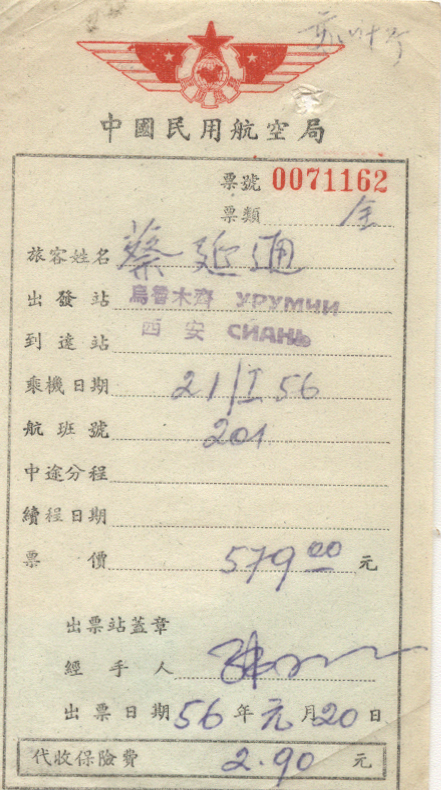 中國民用航空局
票號 0071162
票類 全
旅客姓名 蔡延通
出發站 烏魯木齊 УРУМЧИ
到達站 西安 СИАНЬ
乘機日期 21/I 56
航班號 201
中途分程
續程日期
票價 579.00 元
出票站蓋章
經手人
出票日期 56 年 元 月 20 日
代收保險費 2.90 元